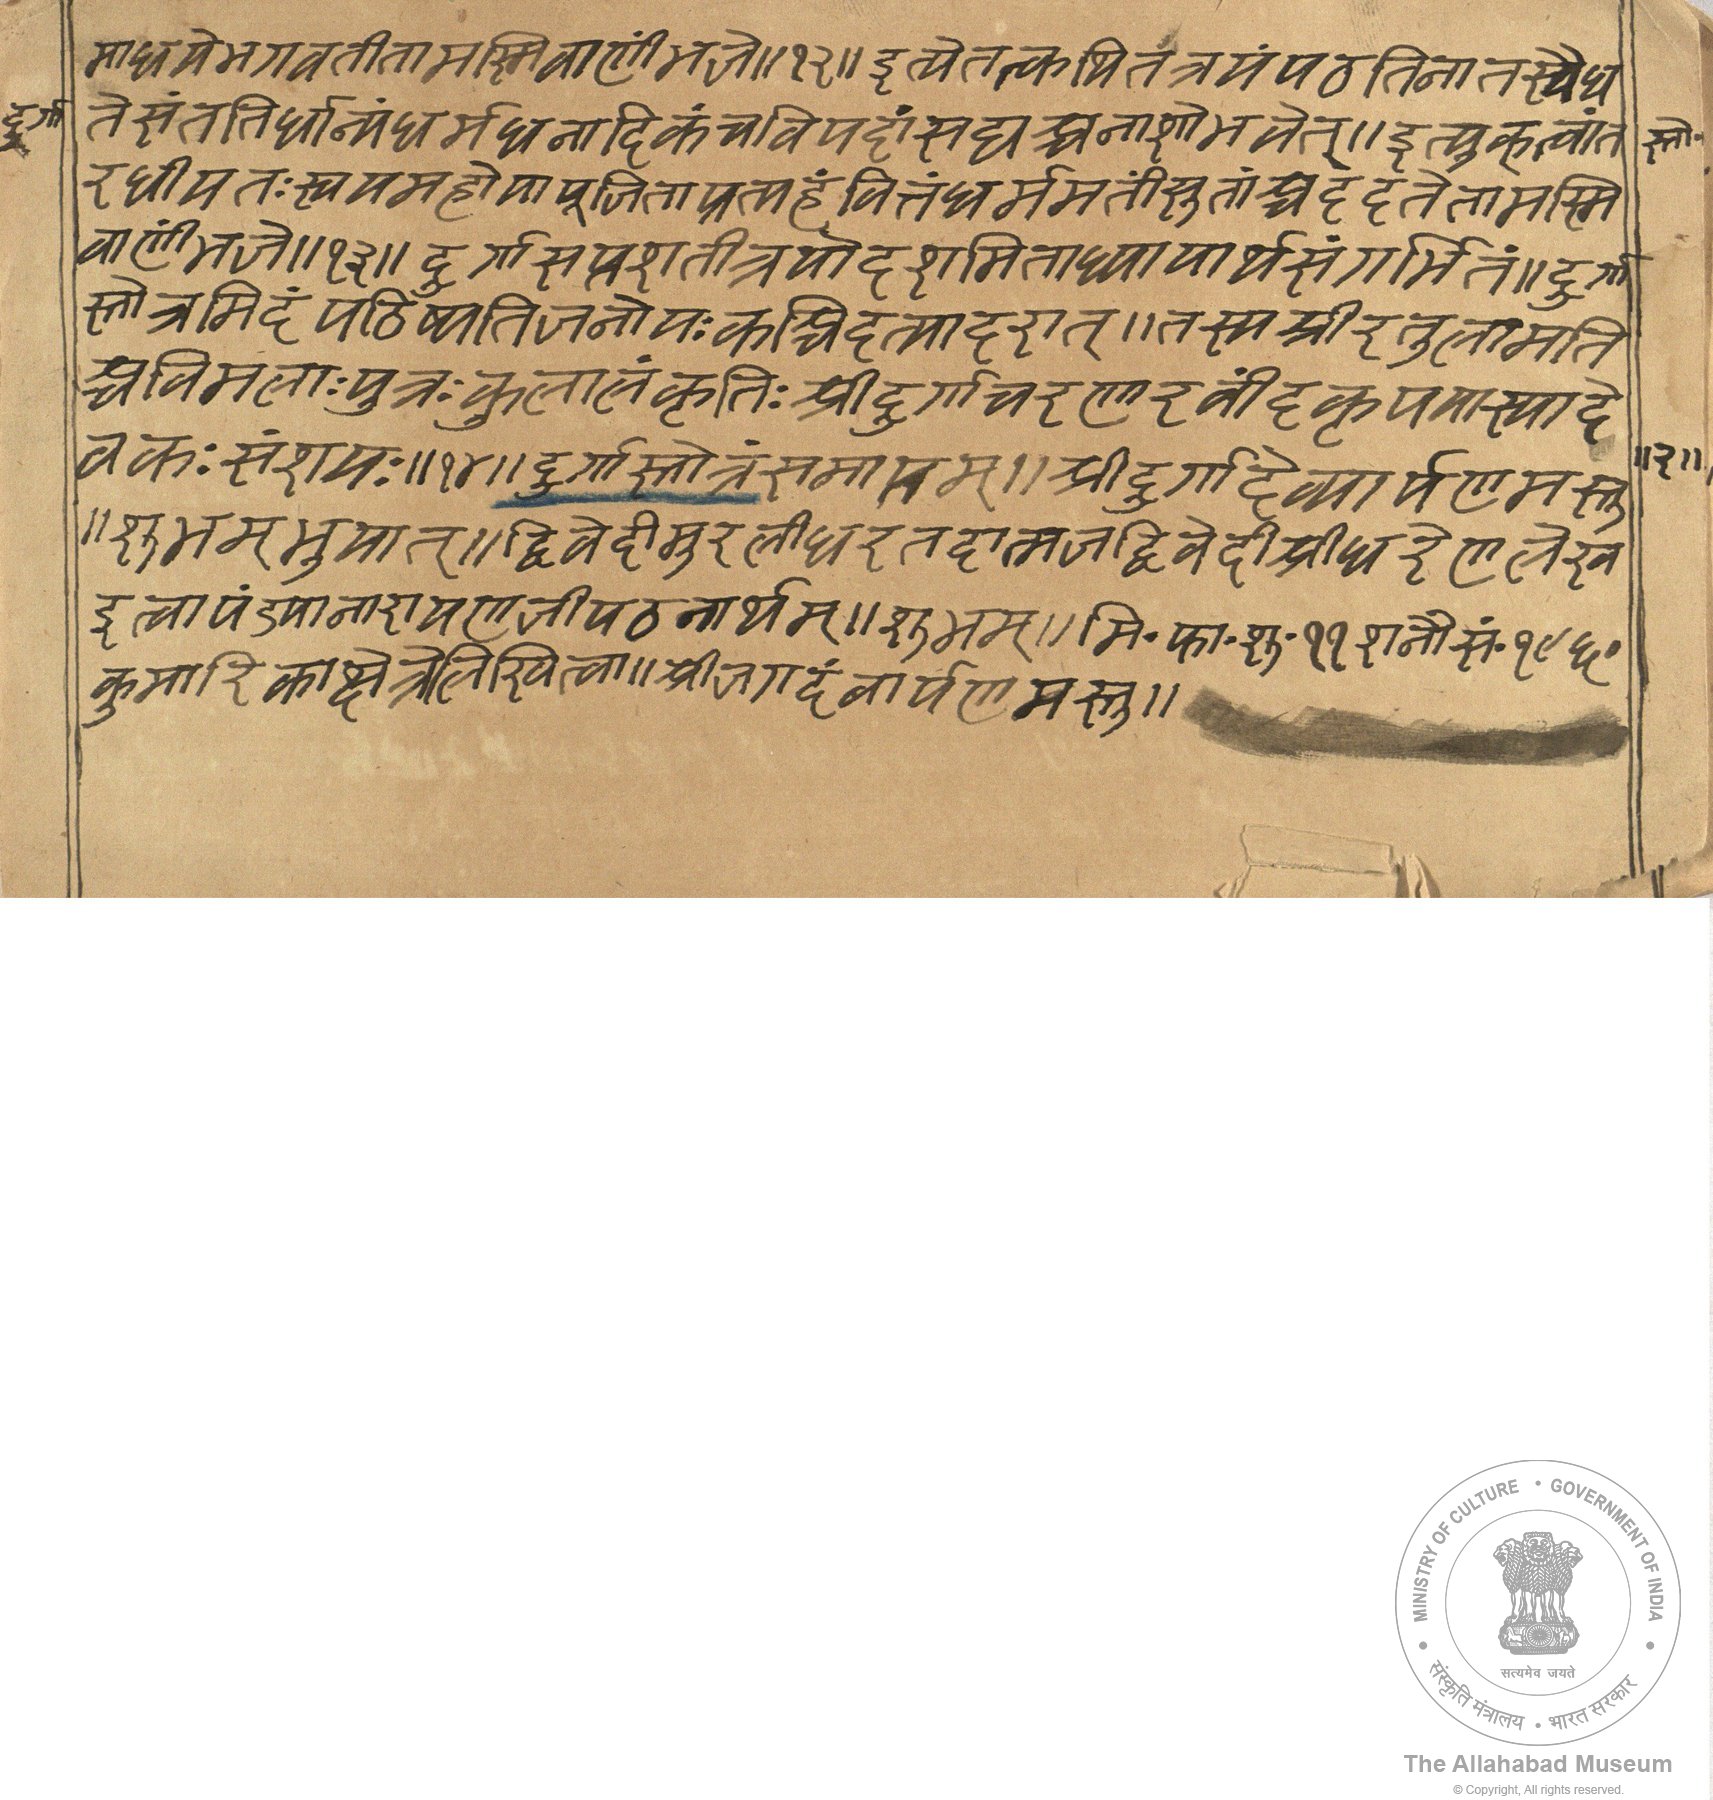 माध्यये भगवती तामस्मि वाणीं भजे॥१२॥ इत्येतत्कथितं त्रयं पठति ना तस्यैध
दुर्गा
ते संततिर्धान्यं धर्म धनादिकं च विपदां सद्यश्च नाशो भवेत्॥ इत्युक्त्वांत
स्तो॰
रधीयतः स्वयमहो या पूजिता प्रत्यहं वित्तं धर्ममतीं सुतांश्च ददते तामस्मि
वाणीं भजे॥१३॥ दुर्गासप्तशतीत्रयोदशमिताध्यायार्थसंगर्भितं॥ दुर्गा
स्तोत्रमिदं पठिष्यति जनो यः कश्चिदत्यादरात्॥ तस्य श्रीरतुला मति
श्च विमलाः पुत्रः कुलालंकृतिः श्रीदुर्गाचरणरवींदकृपया स्याद्दे
वकः संशयः॥१४॥ दुर्गास्तोत्रं समाप्तम्॥ श्रीदुर्गादेव्यार्पणमस्तु
॥२॥
॥शुभम् भुयात्॥ द्विवेदी मुरलीधर तदात्मज द्विवेदी श्रीधरेण लेख
इत्वा पंड्या नारायणजी पठनार्थम्॥ शुभम्॥ मि॰ फा॰ शु॰ ११ शनौ सं॰ १९६०
कुमारिकाक्षेत्रे लिखित्वा॥ श्रीजगदंबार्पणमस्तु॥
MINISTRY OF CULTURE • GOVERNMENT OF INDIA
सत्यमेव जयते
संस्कृति मंत्रालय • भारत सरकार
The Allahabad Museum
© Copyright, All rights reserved.